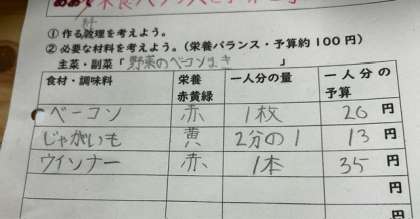 ① 作る料理を考えよう。
② 必要な材料を考えよう。(栄養バランス・予算約100円)
主菜・副菜「野菜のベーコンまき」
食材・調味料 栄養 赤黄緑 一人分の量 一人分の予算
ベーコン 赤 1枚 20円
じゃがいも 黄 2分の1 13円
ウインナー 赤 1本 35円
円
円